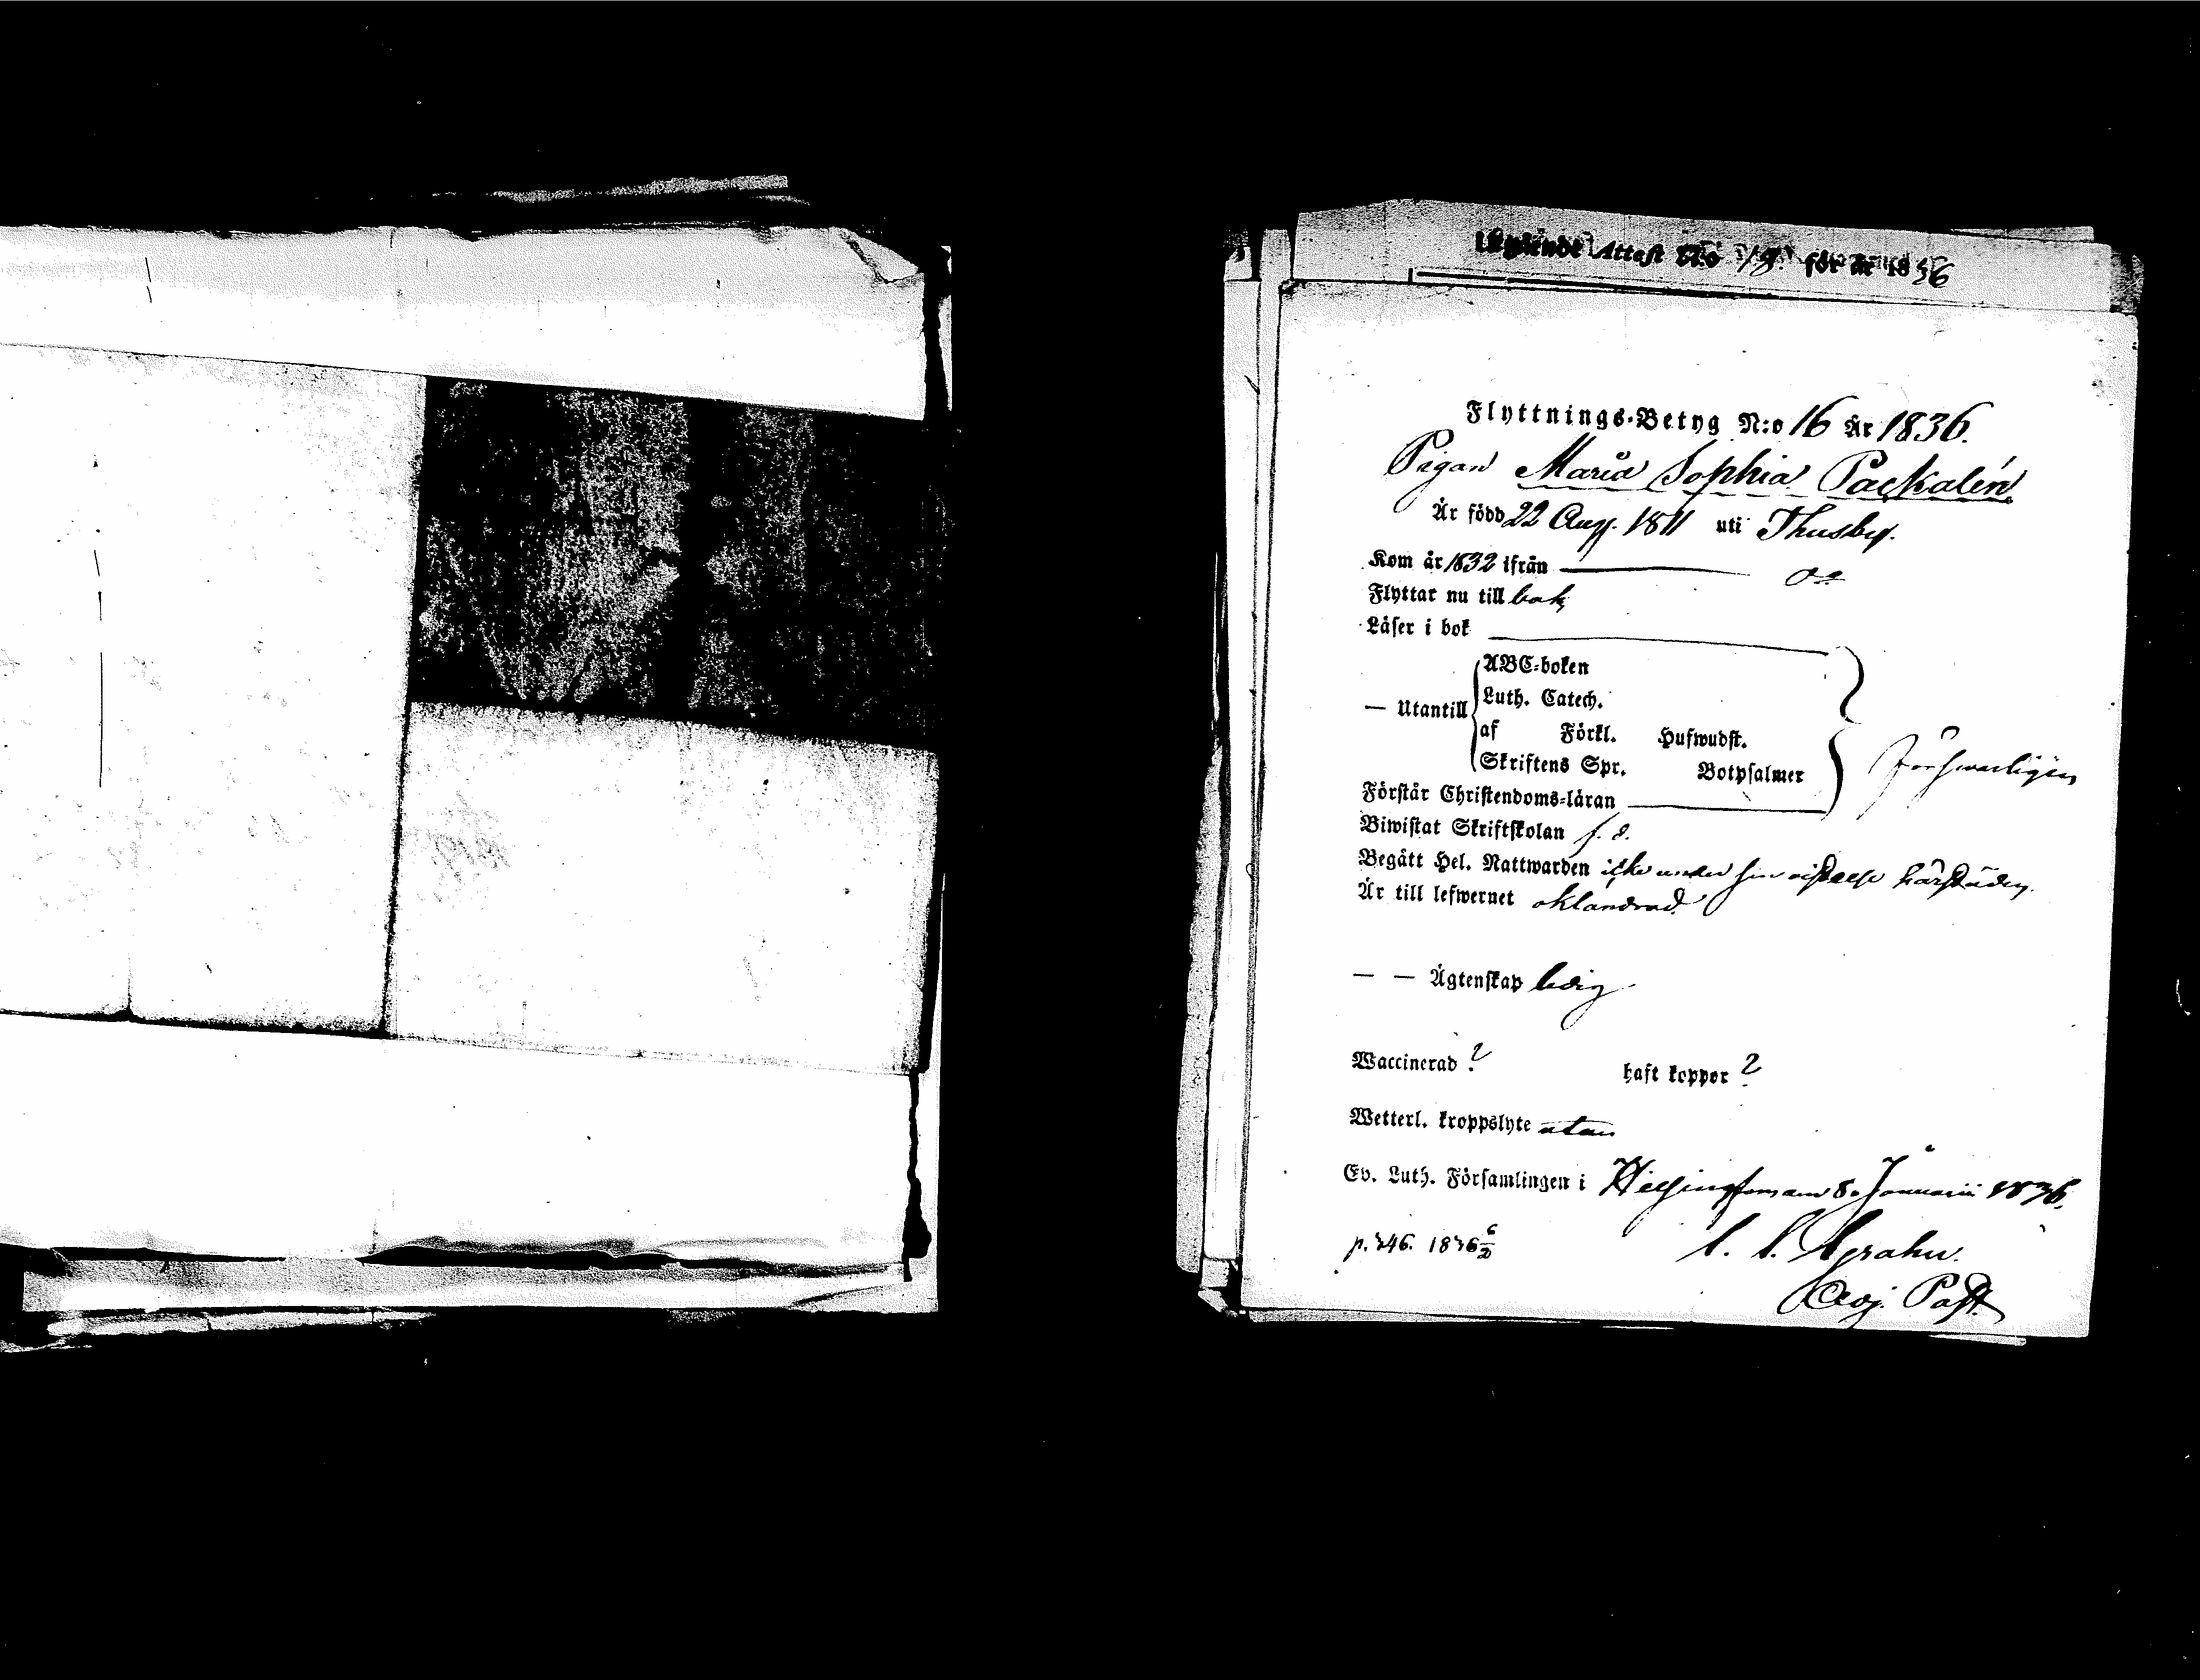 Attest N:o för år 1836
Flyttnings-Betyg N:o 16 År 1836.
Pigan Maria Sophia Packalén
Är född 22 Aug. 1811 uti Thusby.
Kom år 1832 ifrån — do
Flyttar nu till bak
Läser i bok
ABC-boken
— Utantill Luth. Catech.
af Förkl. Hufwudst.
Skriftens Spr. Botpsalmer
försvarligen
Förstår Christendoms-läran
Biwistat Skriftskolan f. d.
Begått Hel. Nattwarden icke under sin vistelse härstädes.
Är till lefwernet oklandrad.
— — Ägtenskap ledig
Waccinerad ? haft koppor ?
Wetterl. kroppslyte utan
Ev. Luth. Församlingen i Helsingfors den 8 Januarii 1836.
p. 346. 1836
Adj. Past.